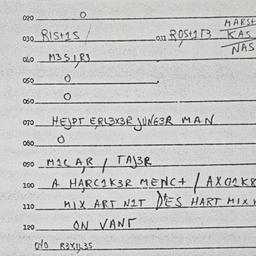 020 O
MARST
030 RISTIS / 031 ROST1T3 KAS
NAS
040 M3S1,R3
050 O
060 O
070 HEJPT ERL3X3R JUNG3R MAN
080 O
090 M1CAR / TAJ3R
100 A HARC1K3R MENCT / AXG1K8
110 MIX ART N1T DES HART MIX
120 ON VANT